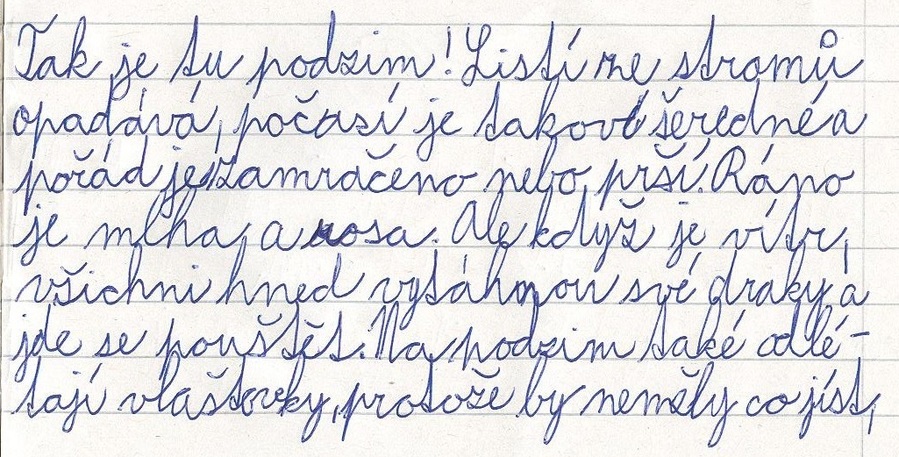 Tak je tu podzim! Listí ze stromů
opadává, počasí je takové šeredné a
pořád je zamračeno nebo prší. Ráno
je mlha, a rosa. Ale když je vítr,
všichni hned vytáhnou své draky a
jde se pouštět. Na podzim také odlé-
tají vlaštovky, protože by neměly co jíst,